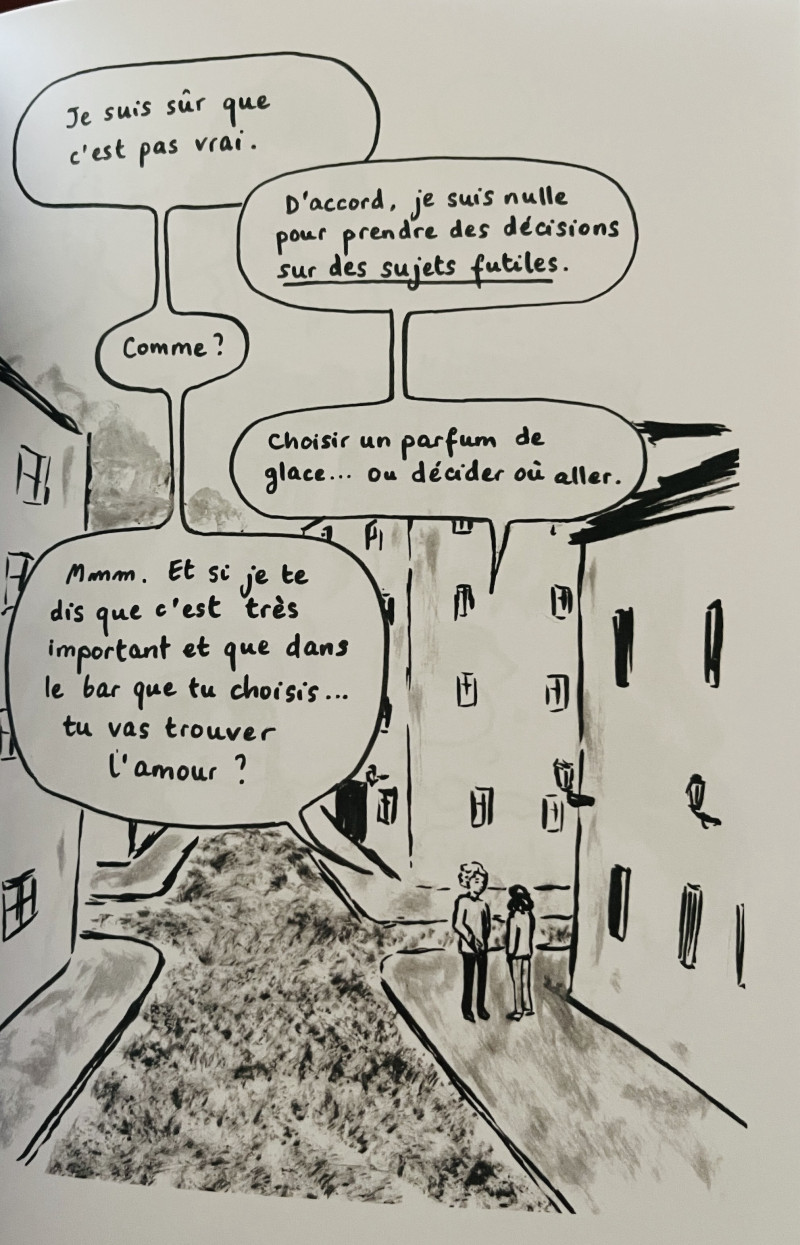 Je suis sûr que
c'est pas vrai.
D'accord, je suis nulle
pour prendre des décisions
sur des sujets futiles.
Comme ?
Choisir un parfum de
glace... ou décider où aller.
Mmm. Et si je te
dis que c'est très
important et que dans
le bar que tu choisis...
tu vas trouver
l'amour ?